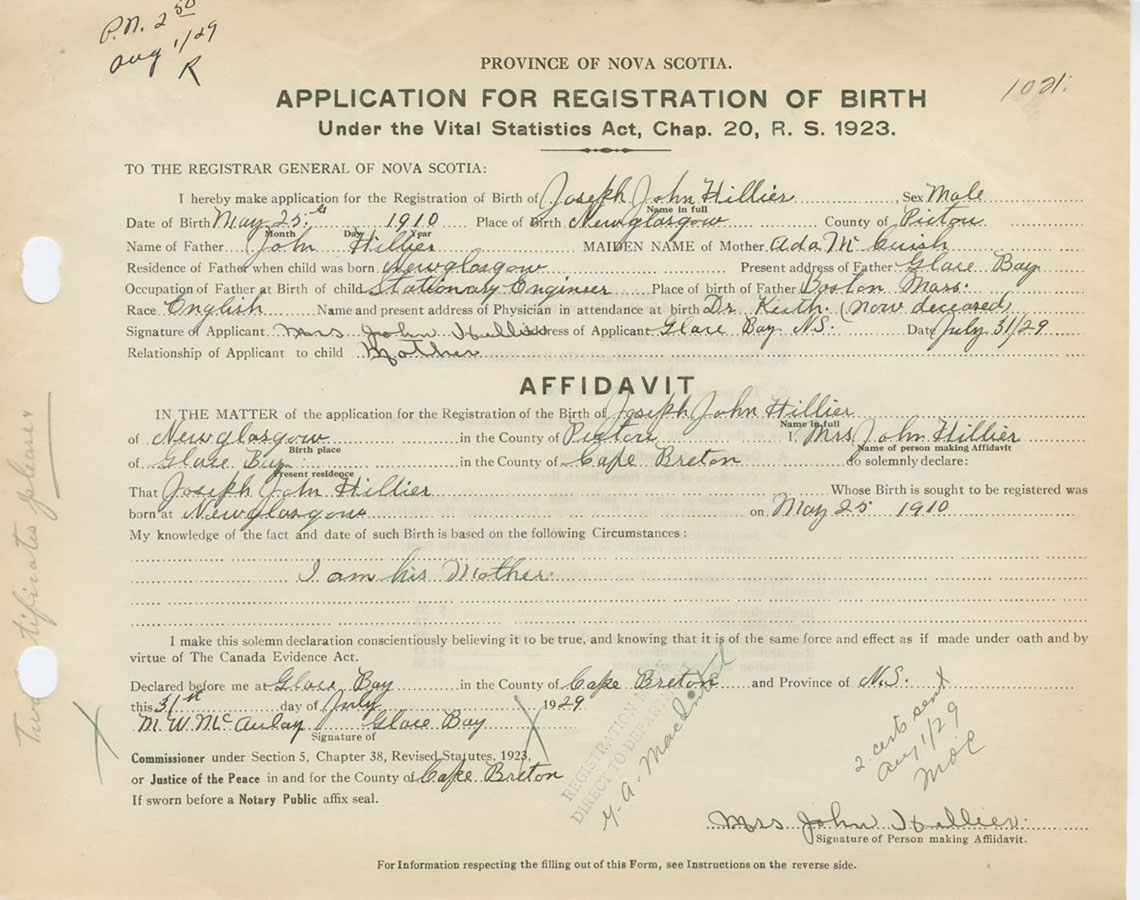 P.N. 2 50
Aug 1/29
R
1021.
PROVINCE OF NOVA SCOTIA.
APPLICATION FOR REGISTRATION OF BIRTH
Under the Vital Statistics Act, Chap. 20, R. S. 1923.
TO THE REGISTRAR GENERAL OF NOVA SCOTIA:
I hereby make application for the Registration of Birth of Joseph John Hillier, Sex Male
Name in full
Date of Birth May 25th 1910 Place of Birth Newglasgow County of Pictou
Month Day Year
Name of Father John Hillier MAIDEN NAME of Mother Ada McCuish
Residence of Father when child was born Newglasgow Present address of Father Glace Bay
Occupation of Father at Birth of child Stationary Engineer Place of birth of Father Boston Mass.
Race English Name and present address of Physician in attendance at birth Dr. Kieth. (now deceased)
Signature of Applicant Mrs John Hillier Address of Applicant Glace Bay N.S. Date July 31/29
Relationship of Applicant to child Mother
AFFIDAVIT
IN THE MATTER of the application for the Registration of the Birth of Joseph John Hillier
Name in full
of Newglasgow in the County of Pictou I, Mrs John Hillier
Birth place Name of person making Affidavit
of Glace Bay in the County of Cape Breton do solemnly declare:
Present residence
That Joseph John Hillier Whose Birth is sought to be registered was
born at Newglasgow on May 25 1910
My knowledge of the fact and date of such Birth is based on the following Circumstances:
I am his Mother.
I make this solemn declaration conscientiously believing it to be true, and knowing that it is of the same force and effect as if made under oath and by
virtue of The Canada Evidence Act.
Declared before me at Glace Bay in the County of Cape Breton and Province of N.S.
this 31st day of July 1929
M. W. McAulay Glace Bay
Signature of
Commissioner under Section 5, Chapter 38, Revised Statutes, 1923,
or Justice of the Peace in and for the County of Cape Breton
If sworn before a Notary Public affix seal.
REGISTRATION
DIRECT TO DEPARTMENT
MacIntosh
2 certs sent
Aug 1/29
Mrs John Hillier.
Signature of Person making Affidavit.
For Information respecting the filling out of this Form, see Instructions on the reverse side.
Two certificates please